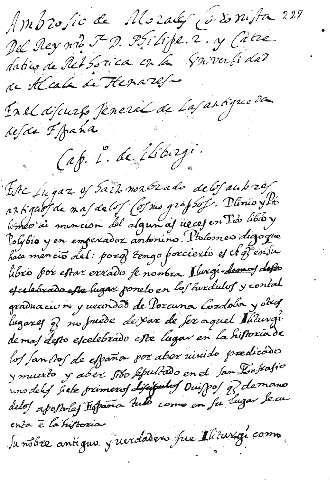 Ambrosio de Morales Coronista 229
Del Rey nro Sr D. Philipe. 2. y Cathe
datico de Rethorica en la Universidad
de Alcala de Henares
En el discurso General de las antigueda
des de España
Cap. 1. de Iliturgi.
Este lugar es harto nombrado de los autores
antiguos de mas de los Cosmographos. Plinio y Pto
lomeo ai mencion del algunas veces en Tito livio y
Polybio y en emperador antonino. Ptolomeo digo que
haze menció del: porq tengo por cierto es el q en su
libro por estar errado se nombra Ilurgi demas desto
es celebrado este lugar ponelo en los turdulos y con tal
graduacion y vecindad de Porcuna Cordoba y otros
lugares q no puede dexar de ser aquel Iliturgi
de mas desto es celebrado este lugar en la historia de
los sanctos de españa por aber vivido predicado
y muerto y aber sido sepultado en el san Eufrasio
uno de los siete primeros discipulos Obispos q demano
de los apostoles España tubo como en su lugar se cu
enta e la historia
Su nombre antiguo y verdadero fue Iliturgi como